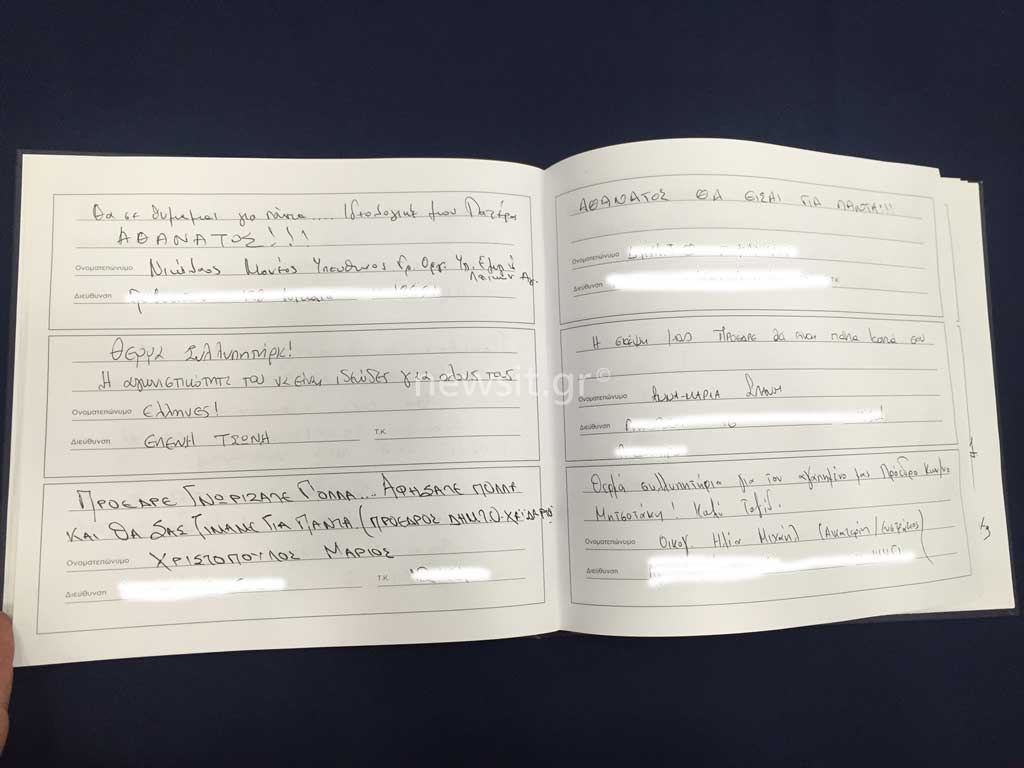 Θα σε θυμαμαι για πάντα.... Ιδεολογικέ μου Πατέρα
ΑΘΑΝΑΤΟΣ!!!
Ονοματεπώνυμο Νικόλαος Υπευθυνος
Διεύθυνση
Θερμά Συλλυπητήρια!
Η αγωνιστικότητά του να είναι για όλους τους
Ονοματεπώνυμο Ελληνες!
Διεύθυνση ΕΛΕΝΗ ΤΖΩΝΗ Τ.Κ.
ΠΡΟΕΔΡΕ ΓΝΩΡΙΣΑΜΕ ΠΟΛΛΑ.... ΑΦΗΣΑΜΕ ΠΟΛΛΑ
ΚΑΙ ΘΑ ΣΑΣ ΤΙΜΑΜΕ ΓΙΑ ΠΑΝΤΑ (ΠΡΟΕΔΡΟΣ
Ονοματεπώνυμο ΧΡΙΣΤΟΠΟΥΛΟΣ ΜΑΡΙΟΣ
Διεύθυνση Τ.Κ.
ΑΘΑΝΑΤΟΣ ΘΑ ΕΙΣΑΙ ΓΙΑ ΠΑΝΤΑ!!!
Ονοματεπώνυμο
Διεύθυνση Τ.Κ.
Η σκέψη μας Πρόεδρε θα είναι πάντα κοντά σου
Ονοματεπώνυμο ΑΝΝΑ-ΜΑΡΙΑ
Διεύθυνση
Θερμά συλλυπητήρια για τον αγαπημένο μας Πρόεδρο Κων/νο
Μητσοτάκη! Καλό Ταξίδι.
Ονοματεπώνυμο Οικογ Ηλία Μιχαήλ
Διεύθυνση
newsit.gr©